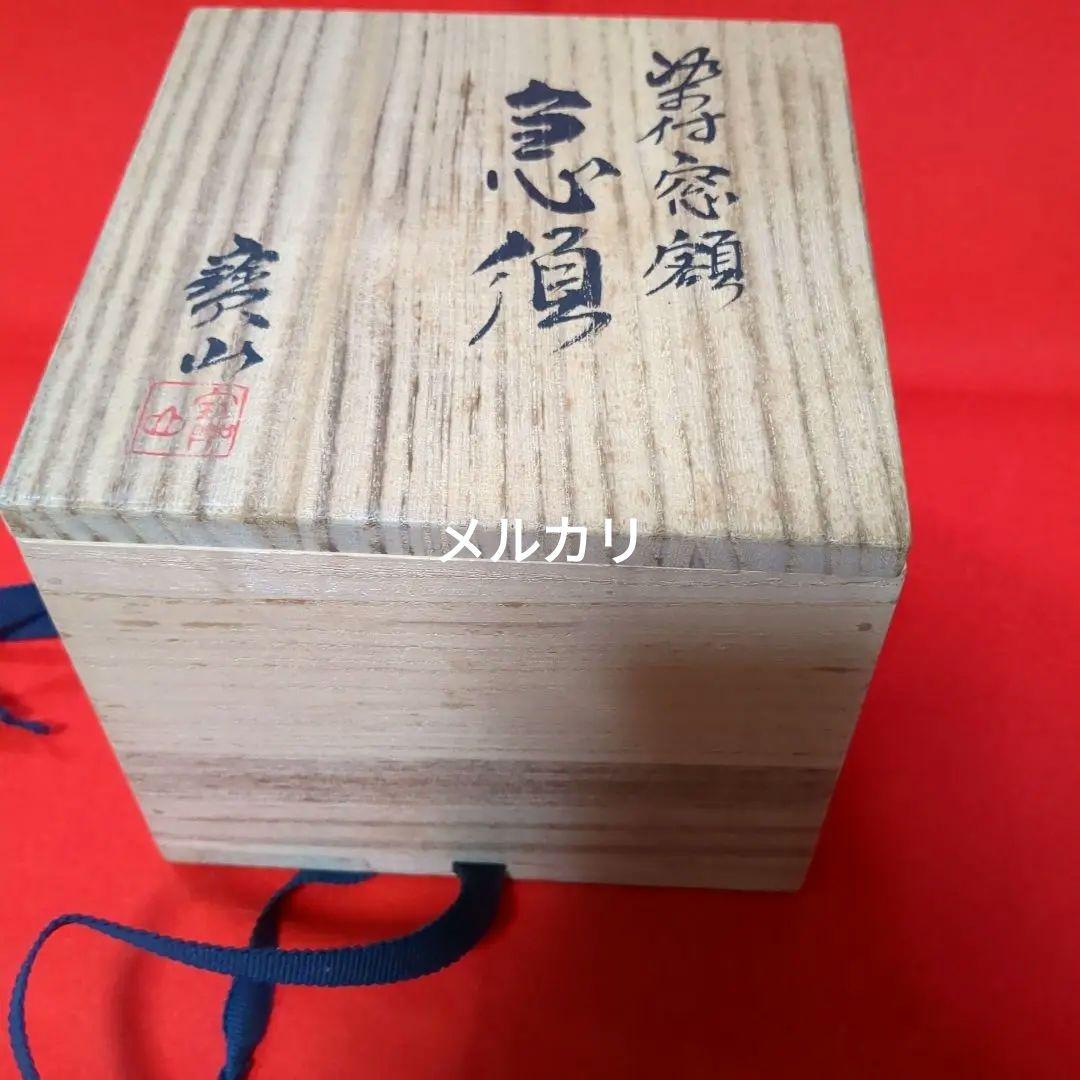 染付窓額
急須
寳山
メルカリ